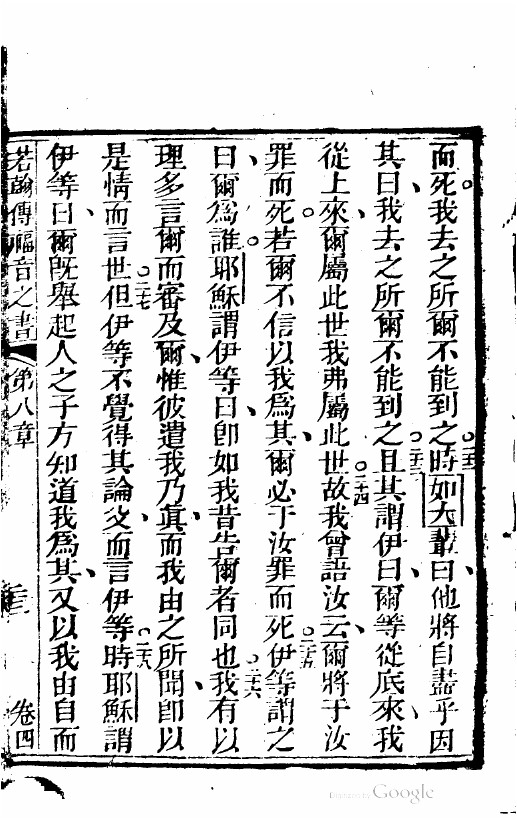 而死。我去之所爾不能到之。二二時如大叢曰、他將自盡乎因
其曰、我去之所爾不能到之。二三且其謂伊曰、爾等從底來、我
從上來、爾屬此世我弗屬此世。二四故我曾語汝云、爾將于汝
罪而死。若爾不信以我爲其、爾必于汝罪而死。二五伊等謂之
曰、爾爲誰。耶穌謂伊等曰、即如我昔告爾者同也。二六我有以
理多言爾而審及爾、惟彼遣我乃眞、而我由之所聞、即以
是情而言世。二七但伊等不覺得其論父、而言伊等。二八時耶穌謂
伊等曰、爾既舉起人之子方知道我爲其、又以我由自而
若翰傳福音之書 第八章 三 卷四
Digitized by Google